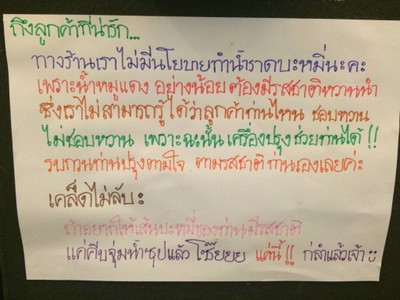 ถึงลูกค้าที่น่ารัก...
ทางร้านเราไม่มีนโยบายทำน้ำราดบะหมี่นะคะ
เพราะน้ำหมูแดง อย่างน้อย ต้องมีรสชาติหวานนำ
ซึ่งเราไม่สามารถรู้ ได้ว่าลูกค้าท่านไหน ชอบหวาน
ไม่ชอบหวาน เพราะฉะนั้น เครื่องปรุง ช่วยท่านได้ !!
รบกวนท่านปรุงตามใจ ตามรสชาติ ท่านเองเลยค่ะ
เคล็ดไม่ลับ:
ถ้าอยากให้เส้นบะหมี่ของท่านมีรสชาติ
แค่คีบจุ่มน้ำซุปแล้ว โซ๊ยยย แค่นี้ !! ก็ลำแล้วเจ้า